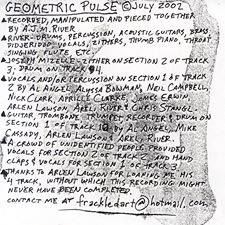 GEOMETRIC PULSE © JULY 2002
RECORDED, MANIPULATED AND PIECED TOGETHER
BY A.J.M. RIVER
RIVER - DRUMS, PERCUSSION, ACOUSTIC GUITARS, BRASS
DIDJERIDOO, VOCALS, ZITHERS, THUMB PIANO, THROAT
SINGING, FLUTE, ETC...
JOSEPH MIZELLE - ZITHER ON SECTION 2 OF TRACK
3, DRUM ON TRACK
VOCALS AND/OR PERCUSSION ON SECTION 1 OF TRACK
2 BY AL ANGEL, ALYSSA BOWMAN, NEIL CAMPBELL,
NICK CLARK, APRILLE CLARKE, JAMES ERWIN,
ARLEN LAWSON, AXEL RIVER & CHRIS STANGE
GUITAR, TROMBONE, TRUMPET, RECORDER & DRUM ON
SECTION 1 OF TRACK BY AL ANGEL, MIKE
CASSADY, ARLEN LAWSON & AXEL RIVER.
A CROWD OF UNIDENTIFIED PEOPLE PROVIDED
VOCALS FOR SECTION 2 OF TRACK 2 AND HAND
CLAPS & VOCALS FOR SECTION 1 OF TRACK 3
THANKS TO ARLEN LAWSON FOR LOANING ME HIS
4 TRACK, WITHOUT WHICH THIS RECORDING MIGHT
NEVER HAVE BEEN COMPLETED
CONTACT ME AT frackledart@hotmail.com